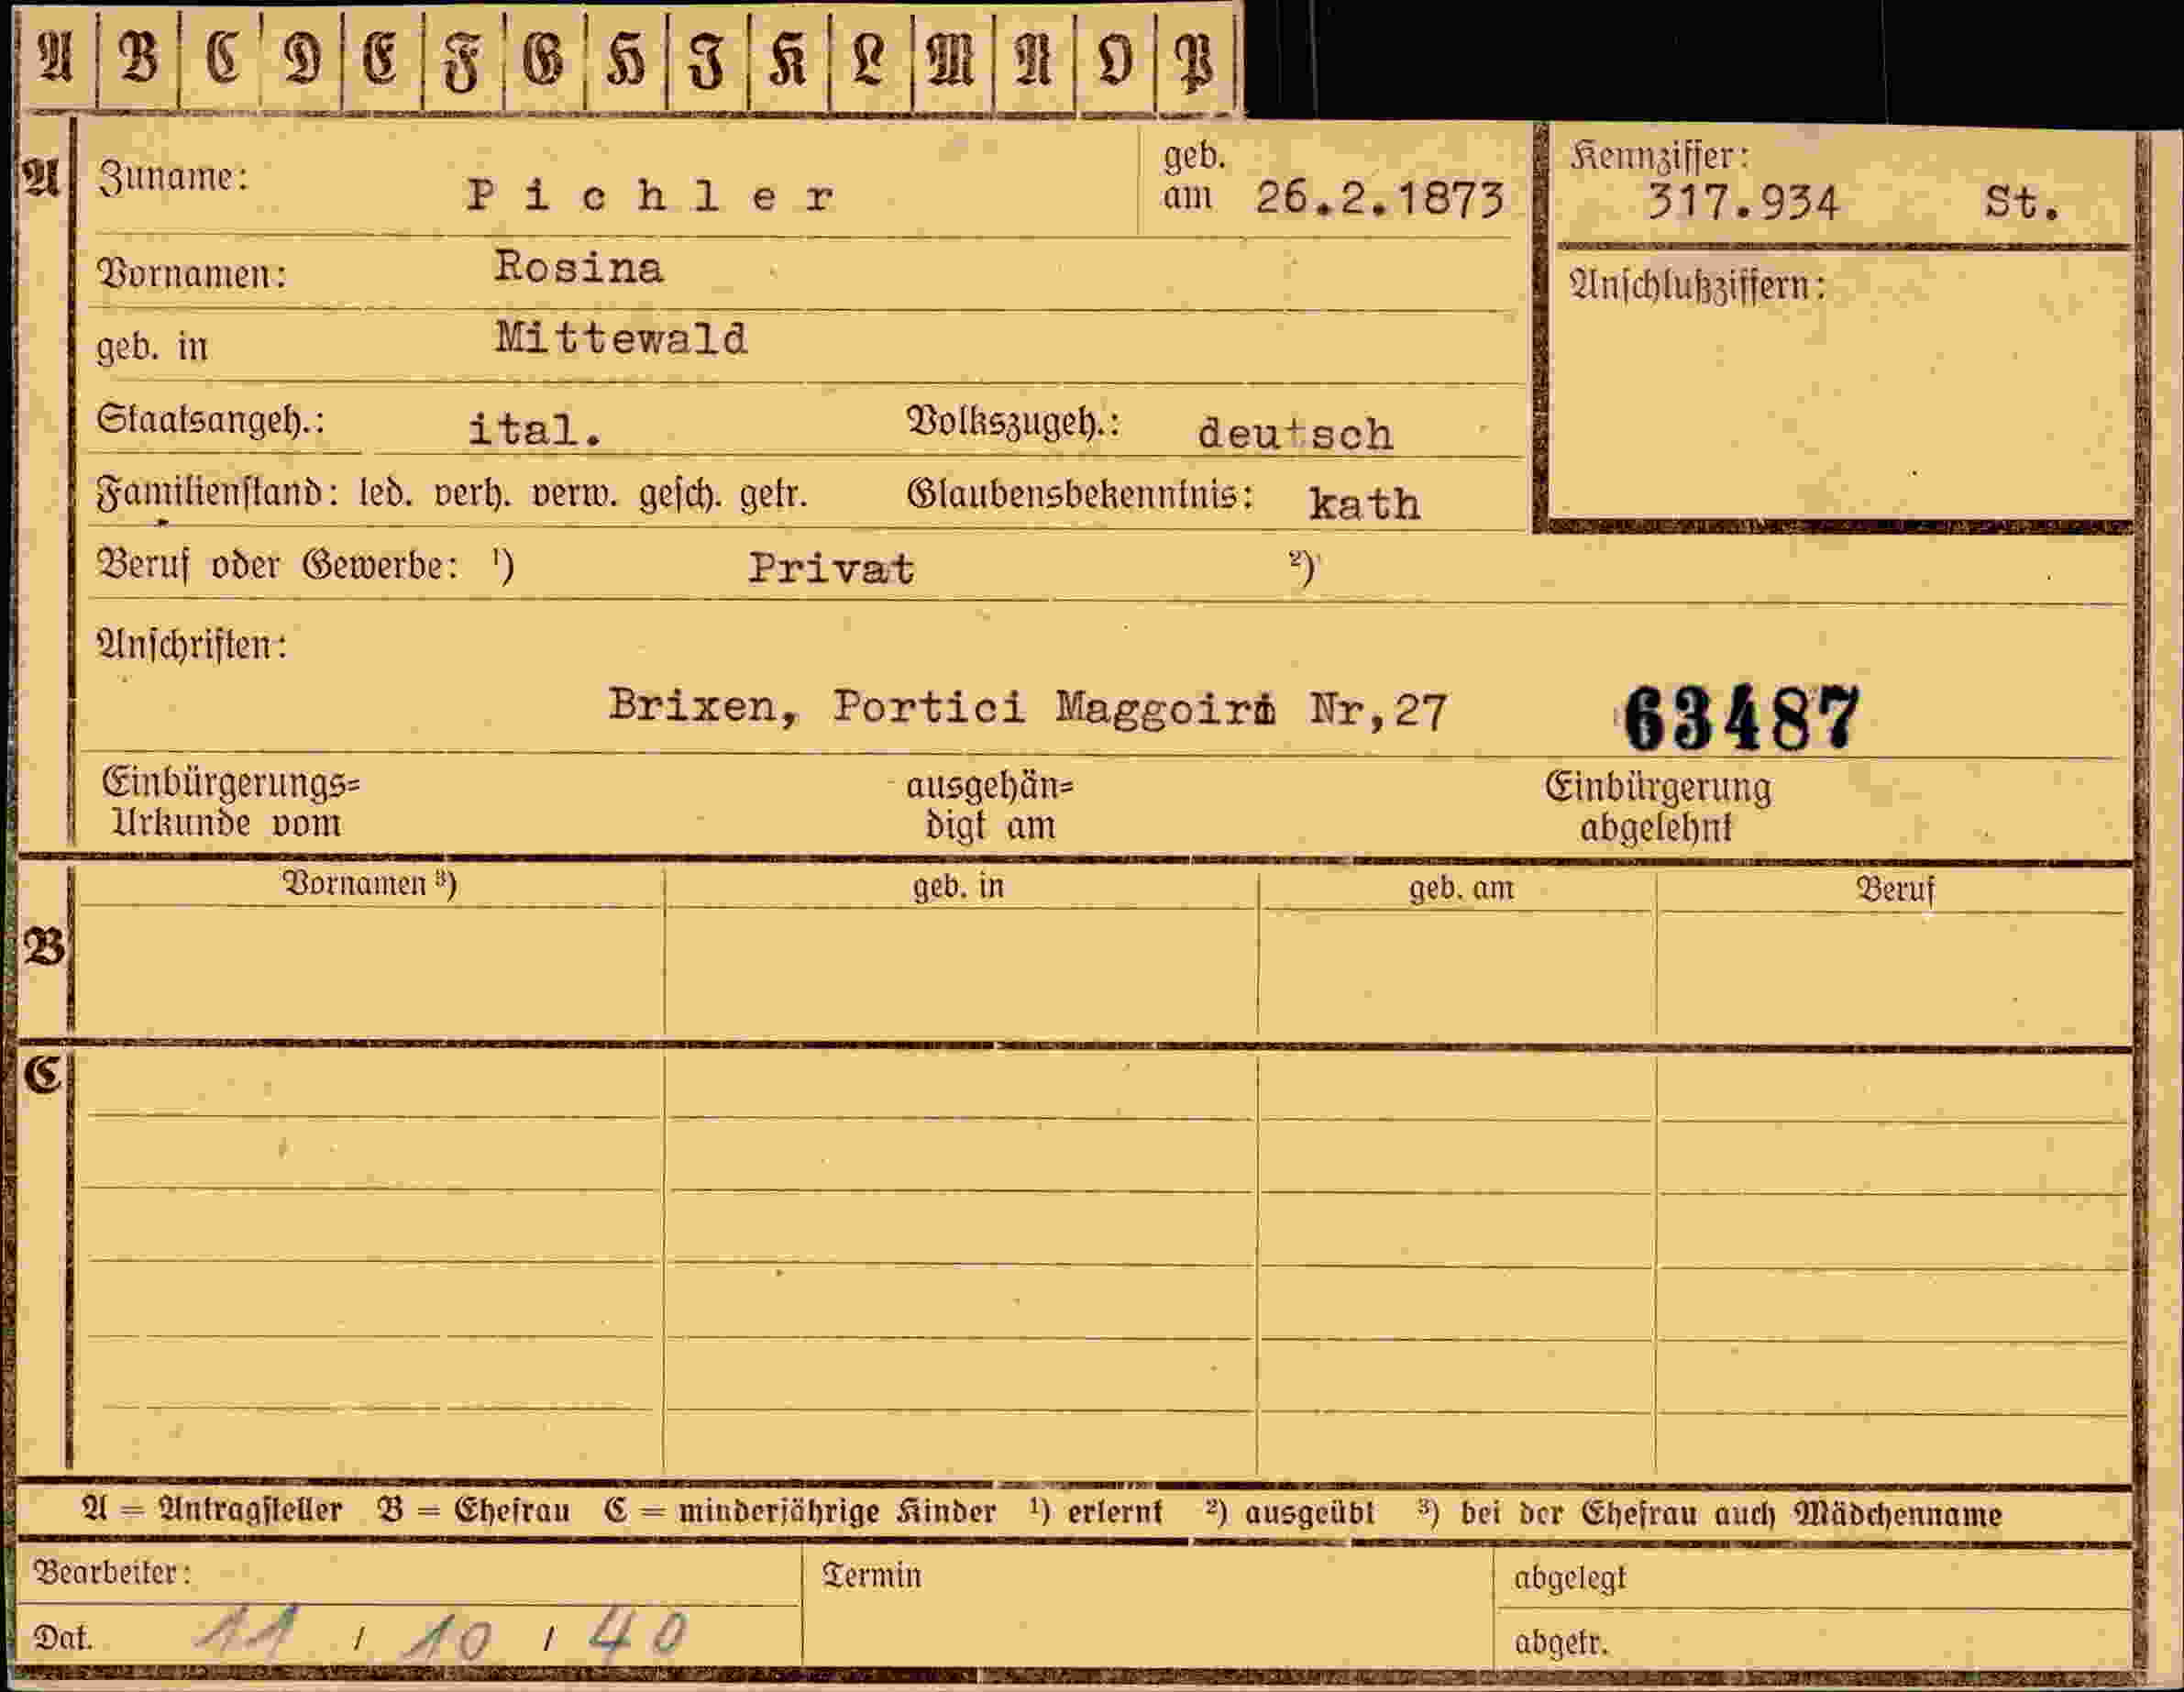 A B C D E F G H I K L M N O P
A Zuname: Pichler geb. am 26.2.1873 Kennziffer: 317.934 St.
Vornamen: Rosina Anschlußziffern:
geb. in Mittewald
Staatsangeh.: ital. Volkszugeh.: deutsch
Familienstand: led. verh. verw. gesch. getr. Glaubensbekenntnis: kath
Beruf oder Gewerbe: ¹) Privat ²)
Anschriften:
Brixen, Portici Maggoiri Nr,27 63487
Einbürgerungs= ausgehän= Einbürgerung
Urkunde vom digt am abgelehnt
Vornamen ³) geb. in geb. am Beruf
B
C
A = Antragsteller B = Ehefrau C = minderjährige Kinder ¹) erlernt ²) ausgeübt ³) bei der Ehefrau auch Mädchenname
Bearbeiter: Termin abgelegt
Dat. 11 / 10 / 40 abgetr.